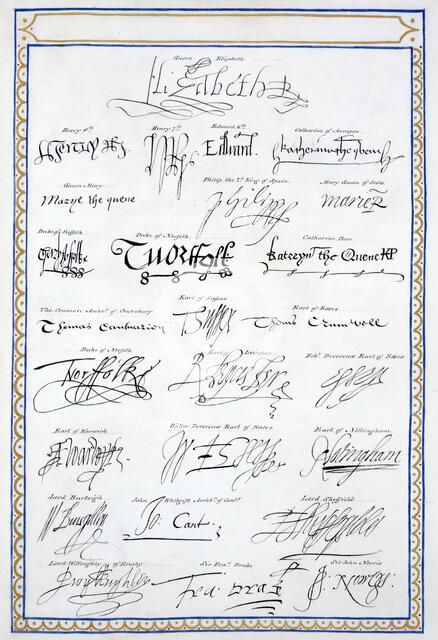 Queen Elizabeth
Elizabeth R
Henry 8th Henry 7th Edward 6th Catharine of Arragon
Henry R HR Edward Katherina the qwene
Queen Mary Philip the 2d King of Spain Mary Queen of Scots
Marye the quene Philipp Marie R
Duke of Suffolk Duke of Norfolk Catharine Parr
T Norfolk Kateryn the Quene KP
Tho. Cranmer Archbp. of Canterbury Earl of Sussex Earl of Essex
Thomas Cantuarien T. Sussex Thomas Crumwell
Duke of Norfolk Earl of Leicester Robt. Devereux Earl of Essex
Norffolke R. Leycester Essex
Earl of Warwick Walter Devereux Earl of Essex Earl of Nottingham
A. Warwyk W Essex Notingham
Lord Burleigh John Whitgift Archbp. of Cantby Lord Sheffield
W. Burghley Jo. Cant Sheffeylde
Lord Willoughby of Eresby Sir Frans. Drake Sir John Norris
Fra: Drake J. Norreys